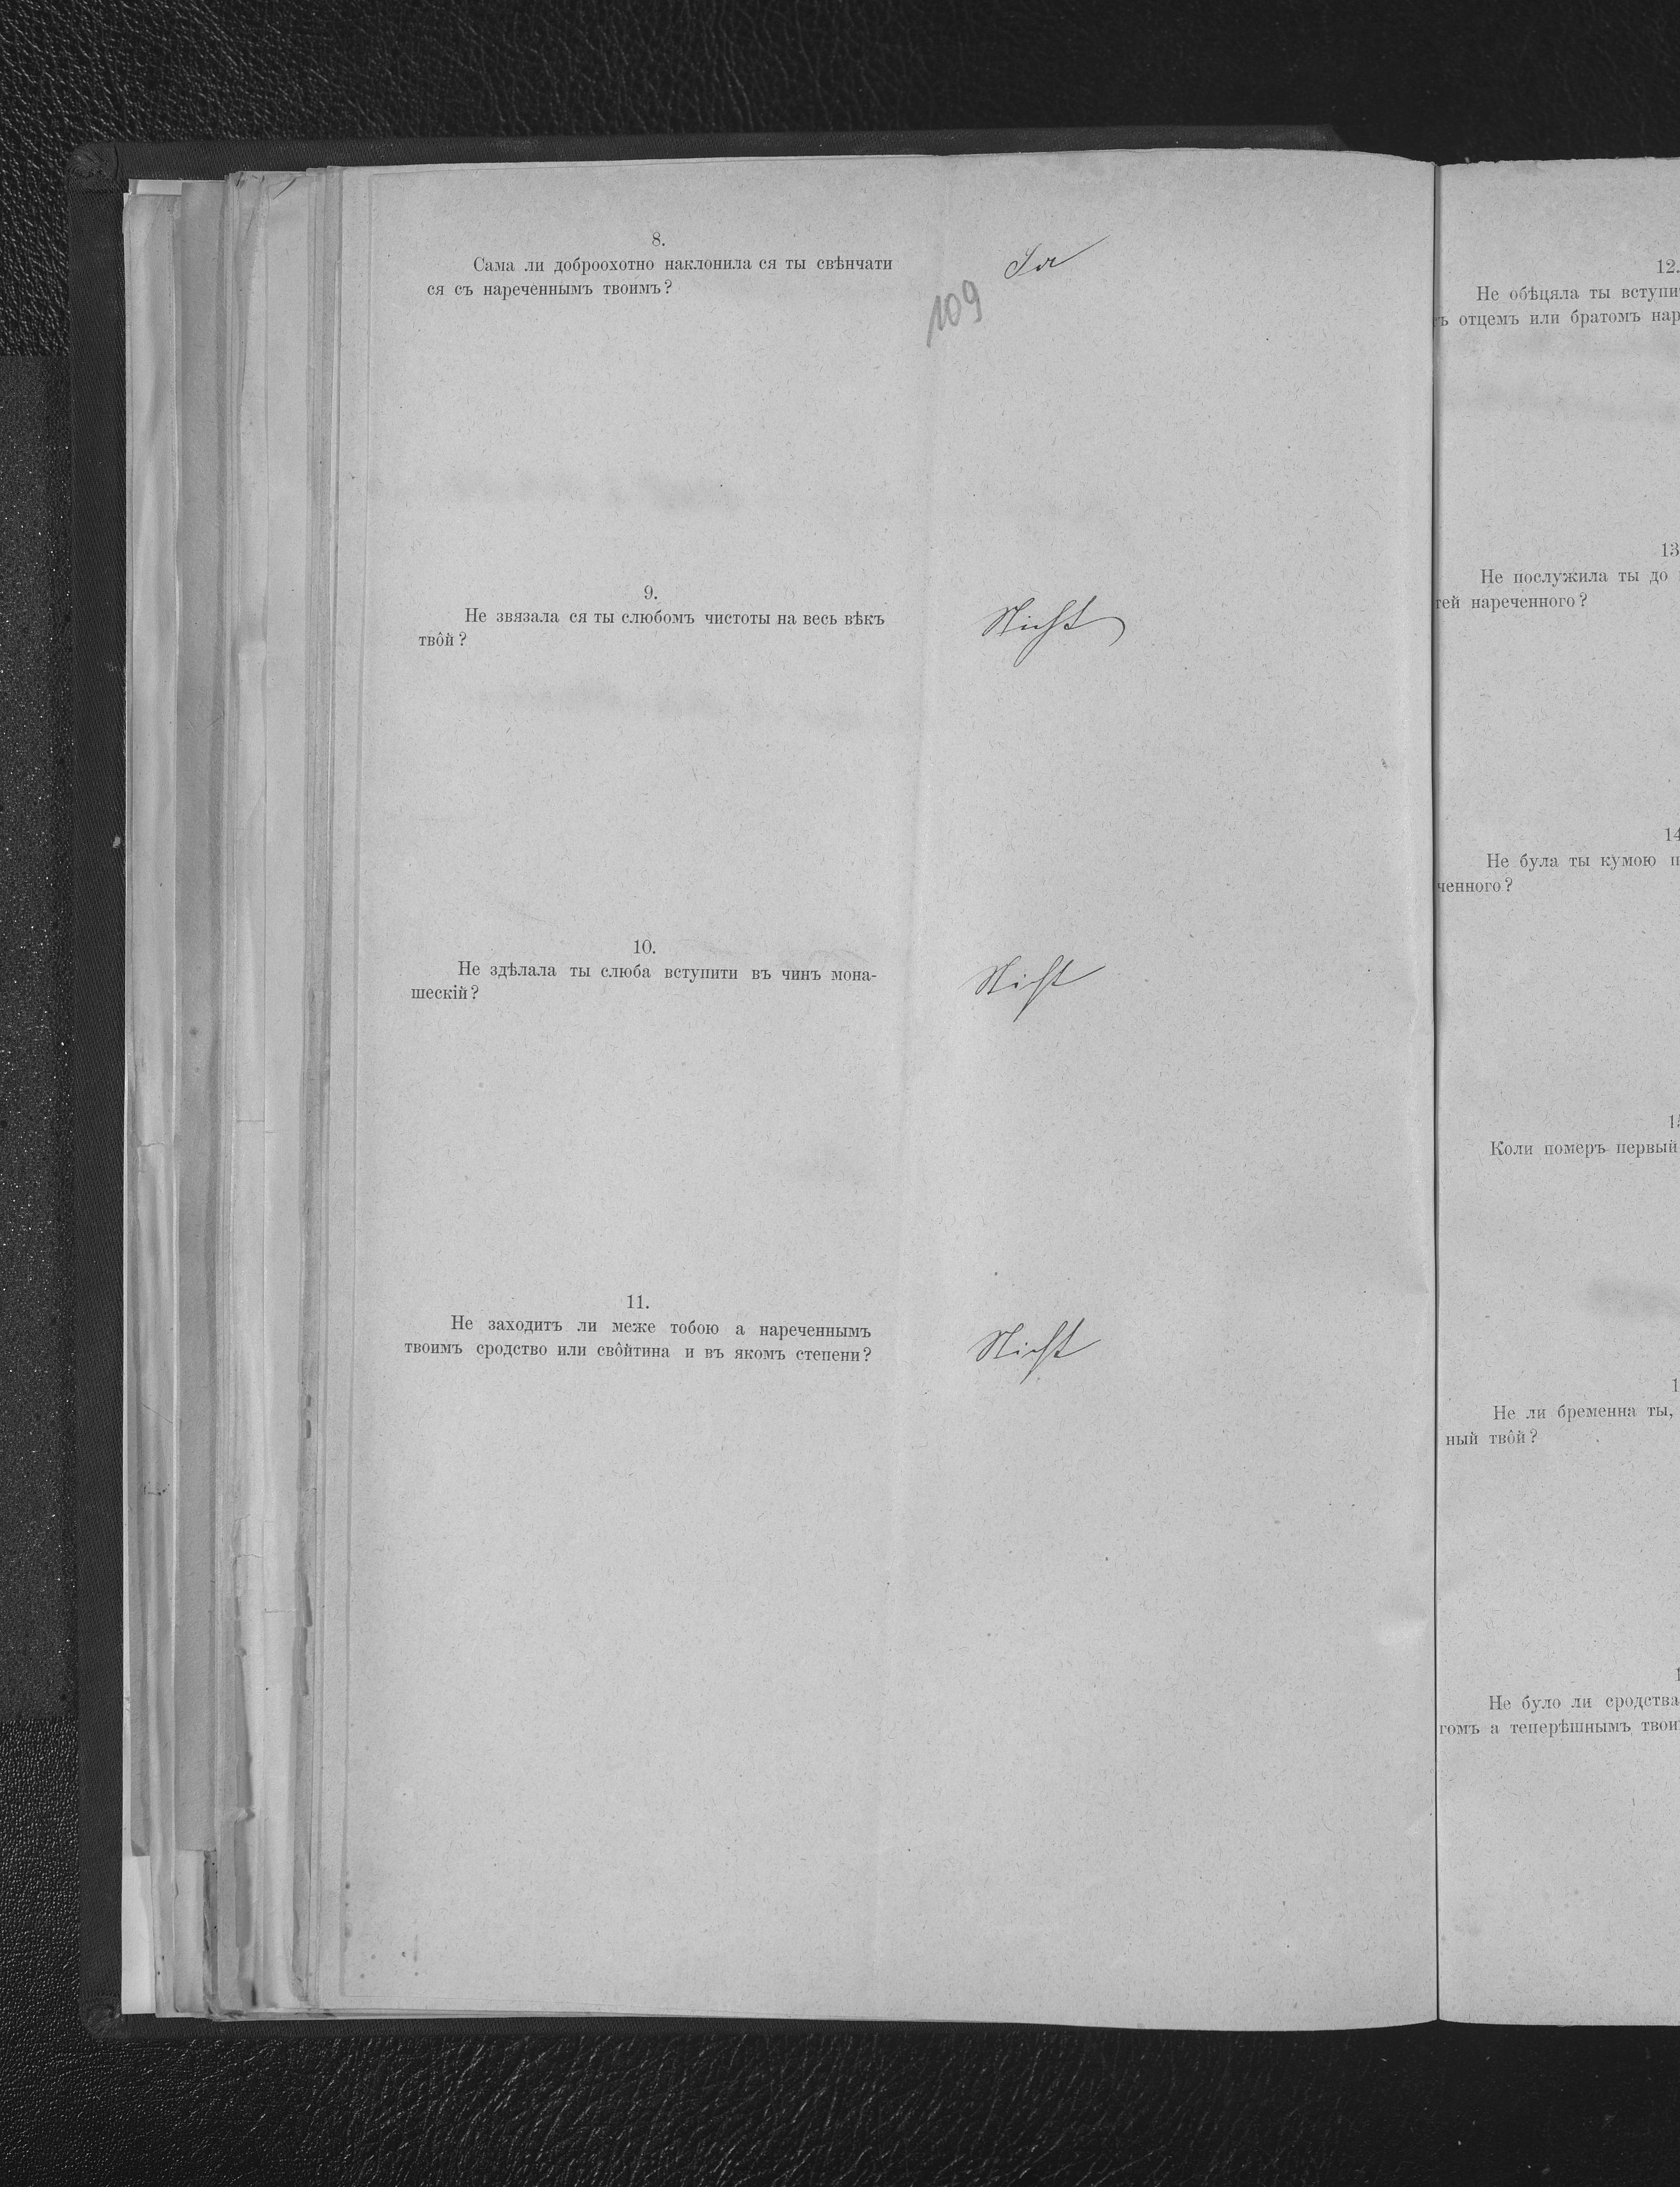 8.
Сама ли доброохотно наклонила ся ты свѣнчати
ся съ нареченнымъ твоимъ?
Ja
109
9.
Не звязала ся ты слюбомъ чистоты на весь вѣкъ
твôй?
Nicht
10.
Не здѣлала ты слюба вступити въ чинъ мона-
шескій?
Nicht
11.
Не заходитъ ли меже тобою а нареченнымъ
твоимъ сродство или свôйтина и въ якомъ степени?
Nicht
12.
Не обѣцяла ты вступи
ъ отцемъ или братомъ нар
13
Не послужила ты до
тей нареченного?
14
Не була ты кумою п
ченного?
1
Коли померъ первый
1
Не ли бременна ты,
ный твôй?
1
Не було ли сродства
гомъ а теперѣшнымъ твои